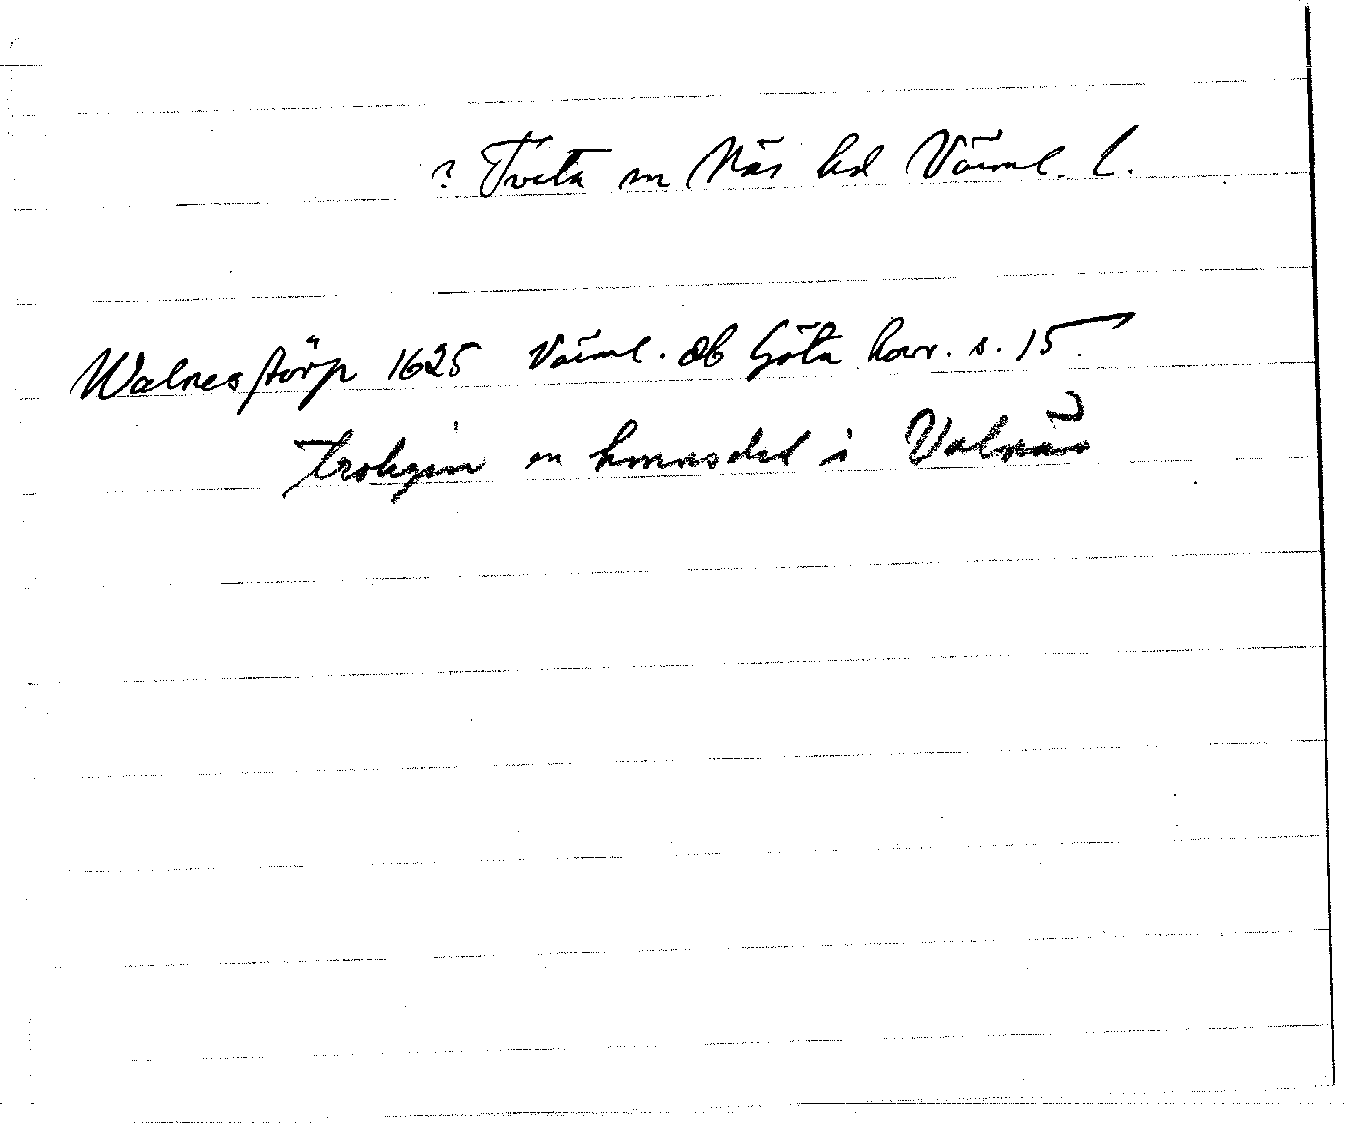 ? Tveta sn Näs hd Värml. l.
Walnes störp 1625 Värml. ÄB Göta hovr. s. 15
troligen en hmnsdel i Valnäs